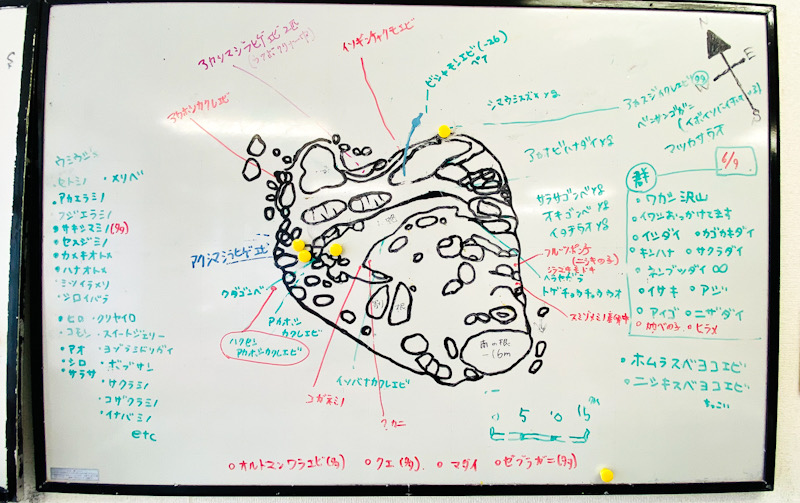 アカシマシラヒゲエビ 2匹
イソギンチャクモエビ
ビシャモンエビ(-26)
ペア
アカホシカクレエビ
シマウミスズメ yg
アカスジカクレエビ yg
ベニサンゴガニ
マツカサウオ
N
E
S
6/9
アカオビハナダイ yg
サラサゴンベ yg
オキゴンベ yg
イタチウオ
フルーツポンチ
(ニシキの子)
トゲチョウチョウウオ
群
ワカシ 沢山
イワシおっかけてます
イシダイ
カゴカキダイ
キンハナ
サクラダイ
ネンブツダイ ∞
イサキ
アジ
アイゴ
ニザダイ
ヒラメ
ホムラスベヨコエビ
ニシキスベヨコエビ
ちっこい
ウミウシ
ヒトミノ
メリベ
アカエラミノ
フジエラミノ
サキシマミノ(yg)
セスジミノ
カメキオトメ
ハナオトメ
ミツイラメリ
シロイバラ
ヒロ
クリヤイロ
コモン
スイートジェリー
アオ
ヨゾラミドリガイ
シロ
ボブサン
サラサ
サクラミノ
コザクラミノ
イナバミノ
etc
アカシマシラヒゲエビ
クダゴンベ
アカホシカクレエビ
イソバナカクレエビ
コガネミノ
?カニ
南の根
-16m
0 5 10 15
オルトマンワラエビ(yg)
クエ(yg)
マダイ
ゼブラガニ(yg)